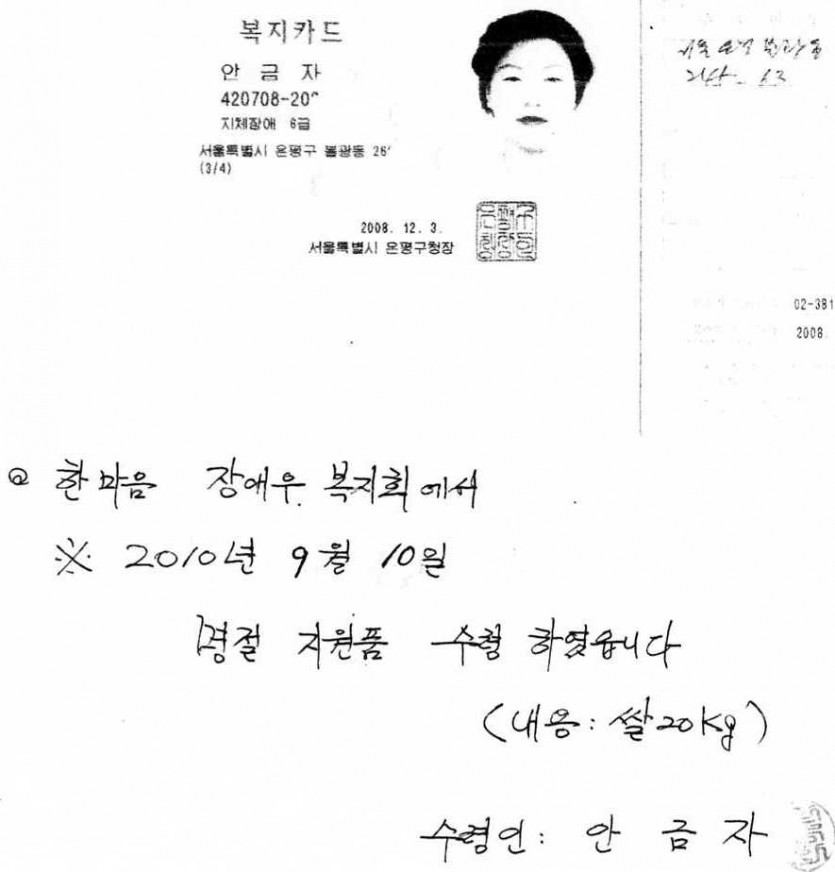 복지카드
안 금 자
420708-20
지체장애 6급
서울특별시 은평구 불광동 26
(3/4)
2008. 12. 3.
서울특별시 은평구청장
서울
02-381
2008.
한마음 장애우 복지회에서
※ 2010년 9월 10일
명절 지원품 수령 하였읍니다
(내용: 쌀 20kg)
수령인: 안 금 자